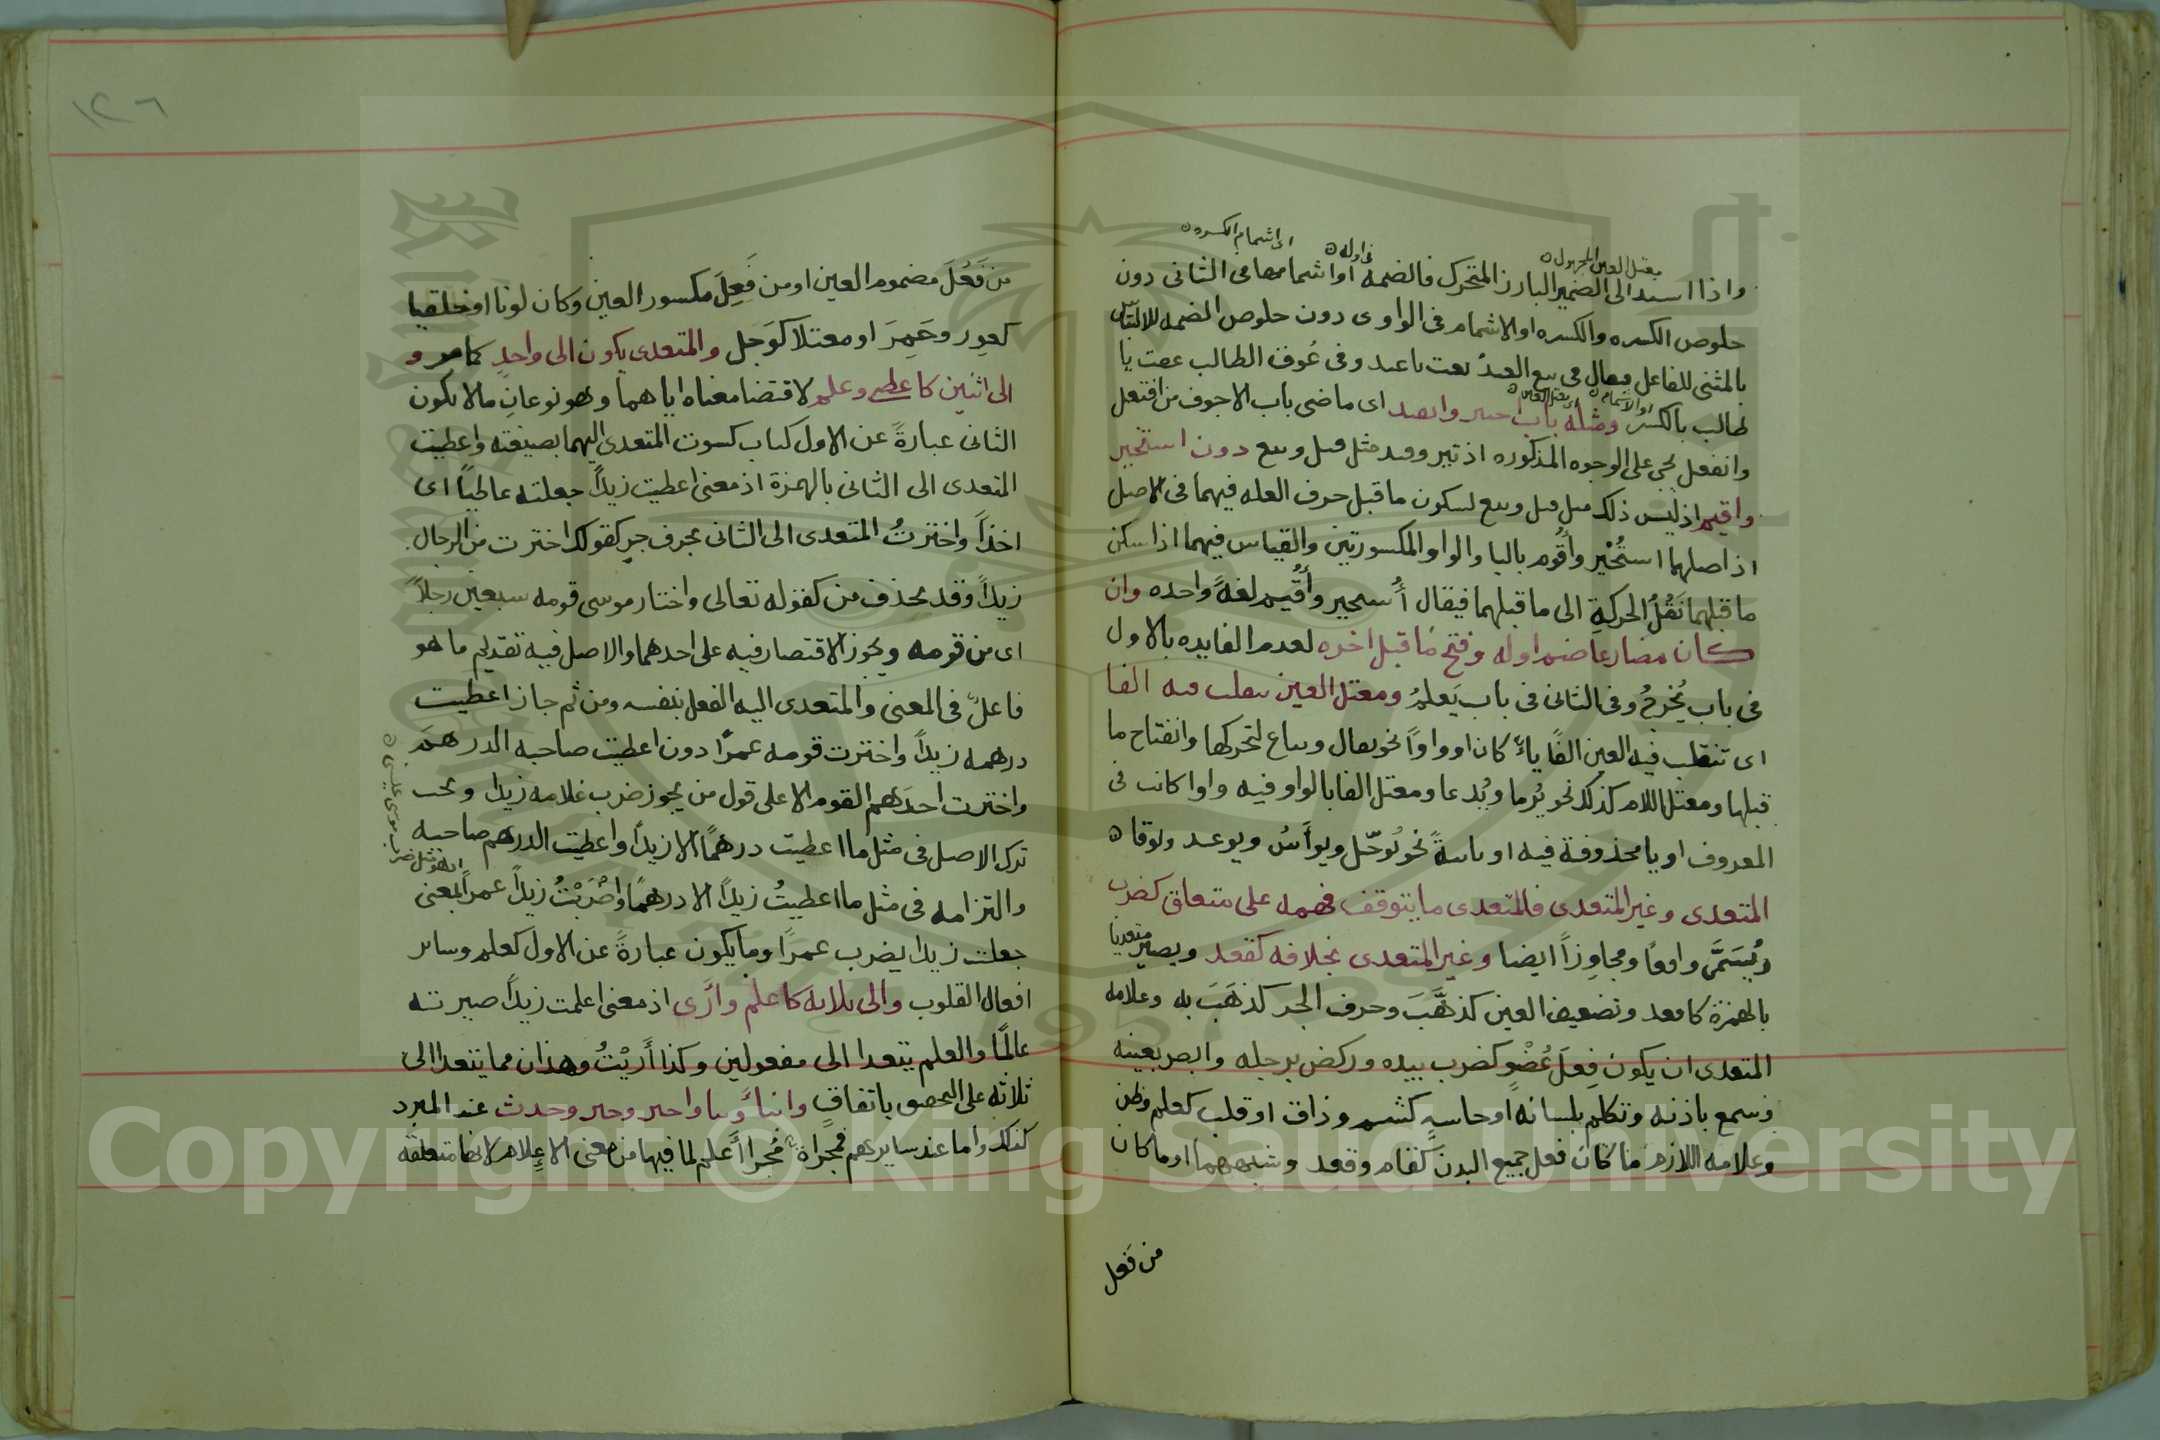 ١٢٦
معتل العين المجهول
فى اوله
اى اشمام الكسره
واذا اسند الى الضمير البارز المتحرك فالضمه اواشمامها فى الثانى دون
خلوص الكسره والكسره او الاشمام فى الواوى دون خلوص الضمه للالتباس
بالمثنى للفاعل فيقال فى بيع العبد بعت ياعبد وفى عُوق الطالب عقت يا
او الاشمام
اى معتل العين
طالب بالكسر ومثله باب اختير وانقيد اى ماضى باب الاجوف من افتعل
وانفعل يجى على الوجوه المذكوره اذ تير وقيد مثل قيل وبيع دون استخير
واقيم اذ ليس ذلك مثل قيل وبيع لسكون ماقبل حرف العله فيهما فى الاصل
اذ اصلهما استُخْيِر واُقْوِم باليا والواو المكسورتين والقياس فيهما اذا سكن
ماقبلهما نَقْلُ الحركةِ الى ماقبلهما فيقال اُستخير واُقيم لغةً واحده وان
كان مضارعا ضم اوله وفتح ماقبل اخره لعدم الفايده بالاول
فى باب يُخرج وفى الثانى فى باب يَعلمُ ومعتل العين ينقلب فيه الفا
اى تنقلب فيه العين الفًا ياءً كان او واوًا نحو يقال ويباع لتحركها وانفتاح ما
قبلها ومعتل اللام كذلك نحو يُرما ويُدعا ومعتل الفا بالواو فيه واوا كانت فى
المعروف او يا محذوفة فيه او ثابتةً نحو يُوجَل ويوأسُ ويوعد ويوقا
المتعدى وغير المتعدى فالمتعدى مايتوقف فهمه على متعلق كضرب
ويُسَمَّى واقعًا ومجاوِزاً ايضا وغير المتعدى بخلافه كقعد ويصير متعديا
بالهمزة كاقعد وتضعيف العين كذهَّبَ وحرف الجر كذهَبَ به وعلامه
المتعدى ان يكون فِعلَ عُضْوٍ كضرب بيده وركض برجله وابصر بعينه
وسمع باذنه وتكلم بلسانه اوحاسهٍ كشم وذاق او قلب كعلم وظن
وعلامه اللازم ما كان فعل جميع البدن كقام وقعد وشبههما او ما كان
من فعل
من فَعُلَ مضموم العين او من فَعِلَ مكسور العين وكان لونا او خلقيا
كعوِر وحَمِرَ او معتلا كوَجل والمتعدى يكون الى واحدٍ كما مر و
الى اثنين كاعطى وعلم لاقتضا معناه اياهما وهو نوعانِ مالا يكون
الثانى عبارةً عن الاول كباب كسوت المتعدى اليهما بصيغته واعطيت
المتعدى الى الثانى بالهمزة اذ معنى اعطيت زيدًا جعلته عاطيًا اى
اخذًا واخترتُ المتعدى الى الثانى بحرف جرٍ كقولك اخترت من الرجال
زيدًا وقد يحذف من كقوله تعالى واختار موسى قومه سبعين رجلاً
اى من قومه ويجوز الاقتصار فيه على احدهما والاصل فيه تقديم ما هو
فاعلٌ فى المعنى والمتعدى اليه الفعل بنفسه ومن ثم جاز اعطيت
درهمه زيدًا واخترت قومه عمرًا دون اعطيت صاحبه الدرهم
واخترت احدهم القوم الا على قول من يجوز ضرب غلامه زيدا ويجب
ترك الاصل فى مثل ما اعطيت درهمًا الا زيدًا واعطيت الدرهم صاحبه
والتزامه فى مثل ما اعطيتُ زيدًا الا درهمًا واضْرَبْتُ زيدًا عمرًا بمعنى
جعلت زيدا يضرب عمرًا وما يكون عبارةً عن الاول كعلم وساير
افعال القلوب والى ثلاثه كاعلم وارى اذ معنى اعلمت زيدًا صيرته
عالمًا والعلم يتعدا الى مفعولين وكذا أَريْتُ وهذان مما يتعدا الى
ثلاثه على التحقيق باتفاقٍ وانبأ ونبا واخبر وخبر وحدث عند المبرد
كذلك واما عند سايرهم فمجراهٌ مُجرا أعلم لما فيها من معنى الاعلام لانها متعلقه